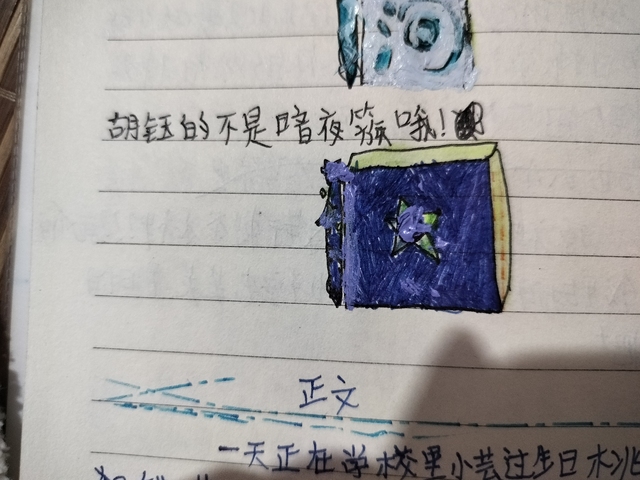 胡钰的不是暗夜簌哦!
正文
一天正在学校里小芸过生日